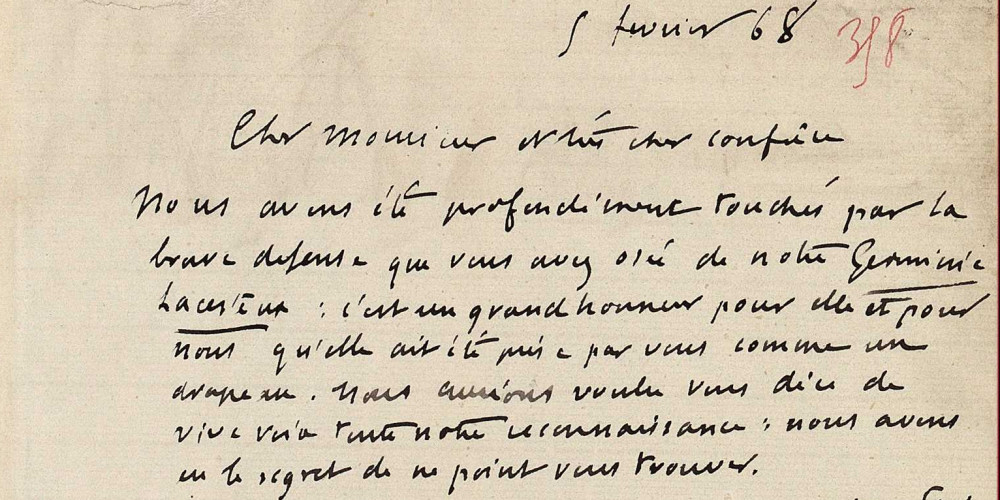 5 fevrier 68
358
Cher Monsieur et très cher confrère
Nous avons été profondément touchés par la
brave defense que vous avez osée de notre Germinie
Lacerteux : c'est un grand honneur pour elle et pour
nous qu'elle ait été prise par vous comme un
drapeau. Nous aurions voulu vous dire de
vive voix toute notre reconnaissance : nous avons
eu le regret de ne point vous trouver.